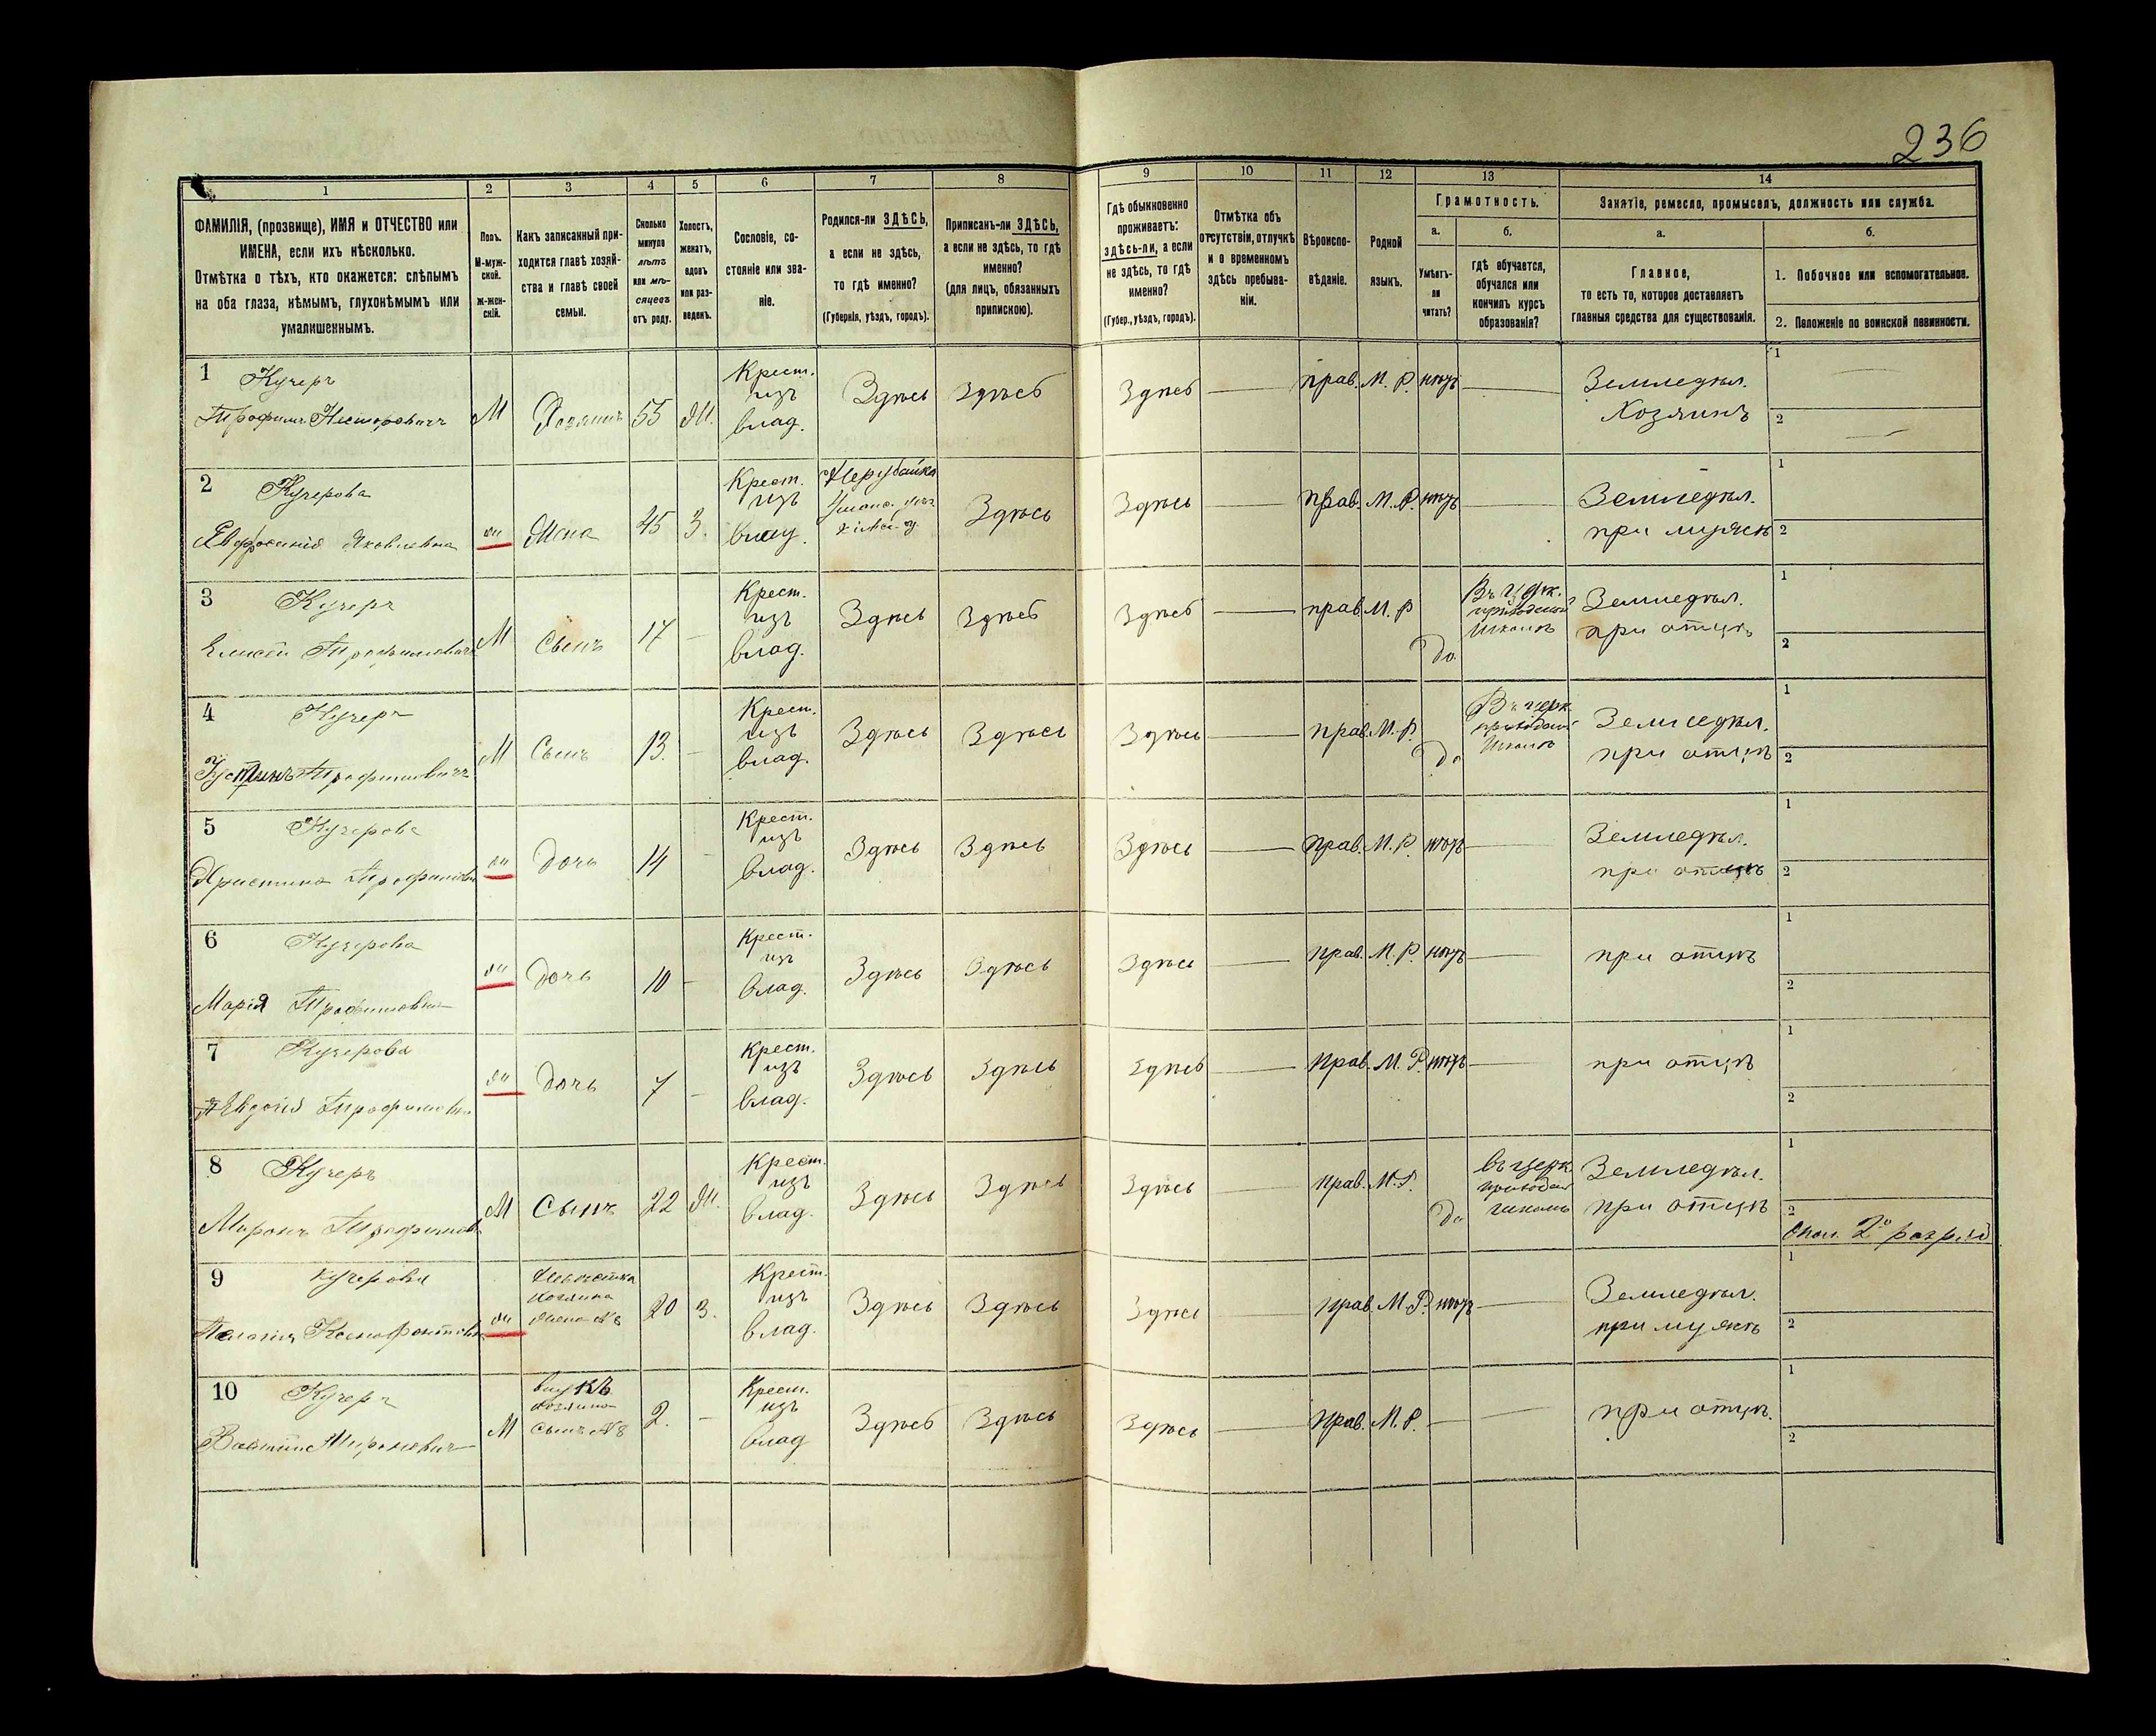 236
1
2
3
4
5
6
7
8
9
10
11
12
13
14
ФАМИЛІЯ, (прозвище), ИМЯ и ОТЧЕСТВО или
ИМЕНА, если ихъ нѣсколько.
Отмѣтка о тѣхъ, кто окажется: слѣпымъ
на оба глаза, нѣмымъ, глухонѣмымъ или
умалишеннымъ.
Полъ.
М-муж-
ской.
ж-жен-
скій.
Какъ записанный при-
ходится главѣ хозяй-
ства и главѣ своей
семьи.
Сколько
минуло
лѣтъ
или мѣ-
сяцевъ
отъ роду.
Холостъ,
женатъ,
вдовъ
или раз-
веденъ.
Сословіе, со-
стояніе или зва-
ніе.
Родился-ли ЗДѢСЬ,
а если не здѣсь,
то гдѣ именно?
(Губернія, уѣздъ, городъ).
Приписанъ-ли ЗДѢСЬ,
а если не здѣсь, то гдѣ
именно?
(для лицъ, обязанныхъ
припискою).
Гдѣ обыкновенно
проживаетъ:
здѣсь-ли, а если
не здѣсь, то гдѣ
именно?
(Губер., уѣздъ, городъ).
Отмѣтка объ
отсутствіи, отлучкѣ
и о временномъ
здѣсь пребыва-
ніи.
Вѣроиспо-
вѣданіе.
Родной
языкъ.
Грамотность.
а.
Умѣетъ-
ли
читать?
б.
гдѣ обучается,
обучался или
кончилъ курсъ
образованія?
Занятіе, ремесло, промыселъ, должность или служба.
а.
Главное,
то есть то, которое доставляетъ
главныя средства для существованія.
б.
1. Побочное или вспомогательное.
2. Положеніе по воинской повинности.
1 Кучеръ
Трофимъ Несторовичъ
М Хозяинъ 55 Ж.
Крест.
изъ
влад.
Здѣсь Здѣсь Здѣсь прав. М. Р. нѣтъ
Земледѣл.
Хозяинъ
1
2
2 Кучерова
Евфросинія Яковлевна
ж Жена 45 З.
Крест.
изъ
влад.
Здѣсь Здѣсь прав. М. Р. нѣтъ
Земледѣл.
при мужѣ
1
2
3 Кучеръ
Елисей Трофимовичъ
М Сынъ 17 -
Крест.
изъ
влад.
Здѣсь Здѣсь Здѣсь прав. М. Р Да
Въ церк.
приходской
школѣ
Земледѣл.
при отцѣ
1
2
4 Кучеръ
Устинъ Трофимовичъ
М Сынъ 13. -
Крест.
изъ
влад.
Здѣсь Здѣсь Здѣсь прав. М. Р. Да
Въ церк.
приходской
школѣ
Земледѣл.
при отцѣ
1
2
5 Кучерова
Христина Трофимовна
ж Дочь 14 -
Крест.
изъ
влад.
Здѣсь Здѣсь Здѣсь прав. М. Р. нѣтъ
Земледѣл.
при отцѣ
1
2
6 Кучерова
Марія Трофимовна
ж Дочь 10 -
Крест.
изъ
влад.
Здѣсь Здѣсь Здѣсь прав. М. Р. нѣтъ
при отцѣ
1
2
7 Кучерова
Евдокія Трофимовна
ж Дочь 7 -
Крест.
изъ
влад.
Здѣсь Здѣсь Здѣсь прав. М. Р. нѣтъ
при отцѣ
1
2
8 Кучеръ
Миронъ Трофимов
М Сынъ 22 Ж.
Крест.
изъ
влад.
Здѣсь Здѣсь Здѣсь прав. М. Р. Да
въ церк
приходской
школѣ
Земледѣл.
при отцѣ
1
2
2° разряд
9 Кучерова
Пелагія Ксенофонтовна
ж
Невѣстка
хозяина
жена №8
20 З.
Крест.
изъ
влад.
Здѣсь Здѣсь Здѣсь прав. М. Р. нѣтъ
Земледѣл.
при мужѣ
1
2
10 Кучеръ
Мироновичъ
М
внукъ
хозяина
сынъ №8
2. -
Крест.
изъ
влад
Здѣсь Здѣсь Здѣсь прав. М. Р. -
при отцѣ.
1
2